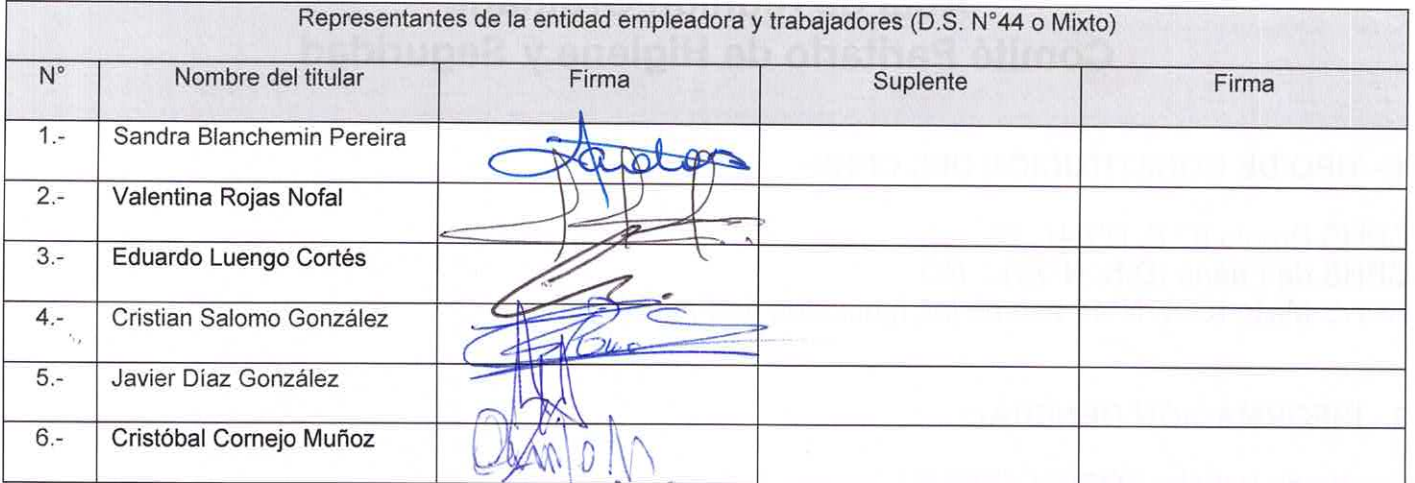 Representantes de la entidad empleadora y trabajadores (D.S. N°44 o Mixto)
N° Nombre del titular Firma Suplente Firma
1.- Sandra Blanchemin Pereira
2.- Valentina Rojas Nofal
3.- Eduardo Luengo Cortés
4.- Cristian Salomo González
5.- Javier Díaz González
6.- Cristóbal Cornejo Muñoz